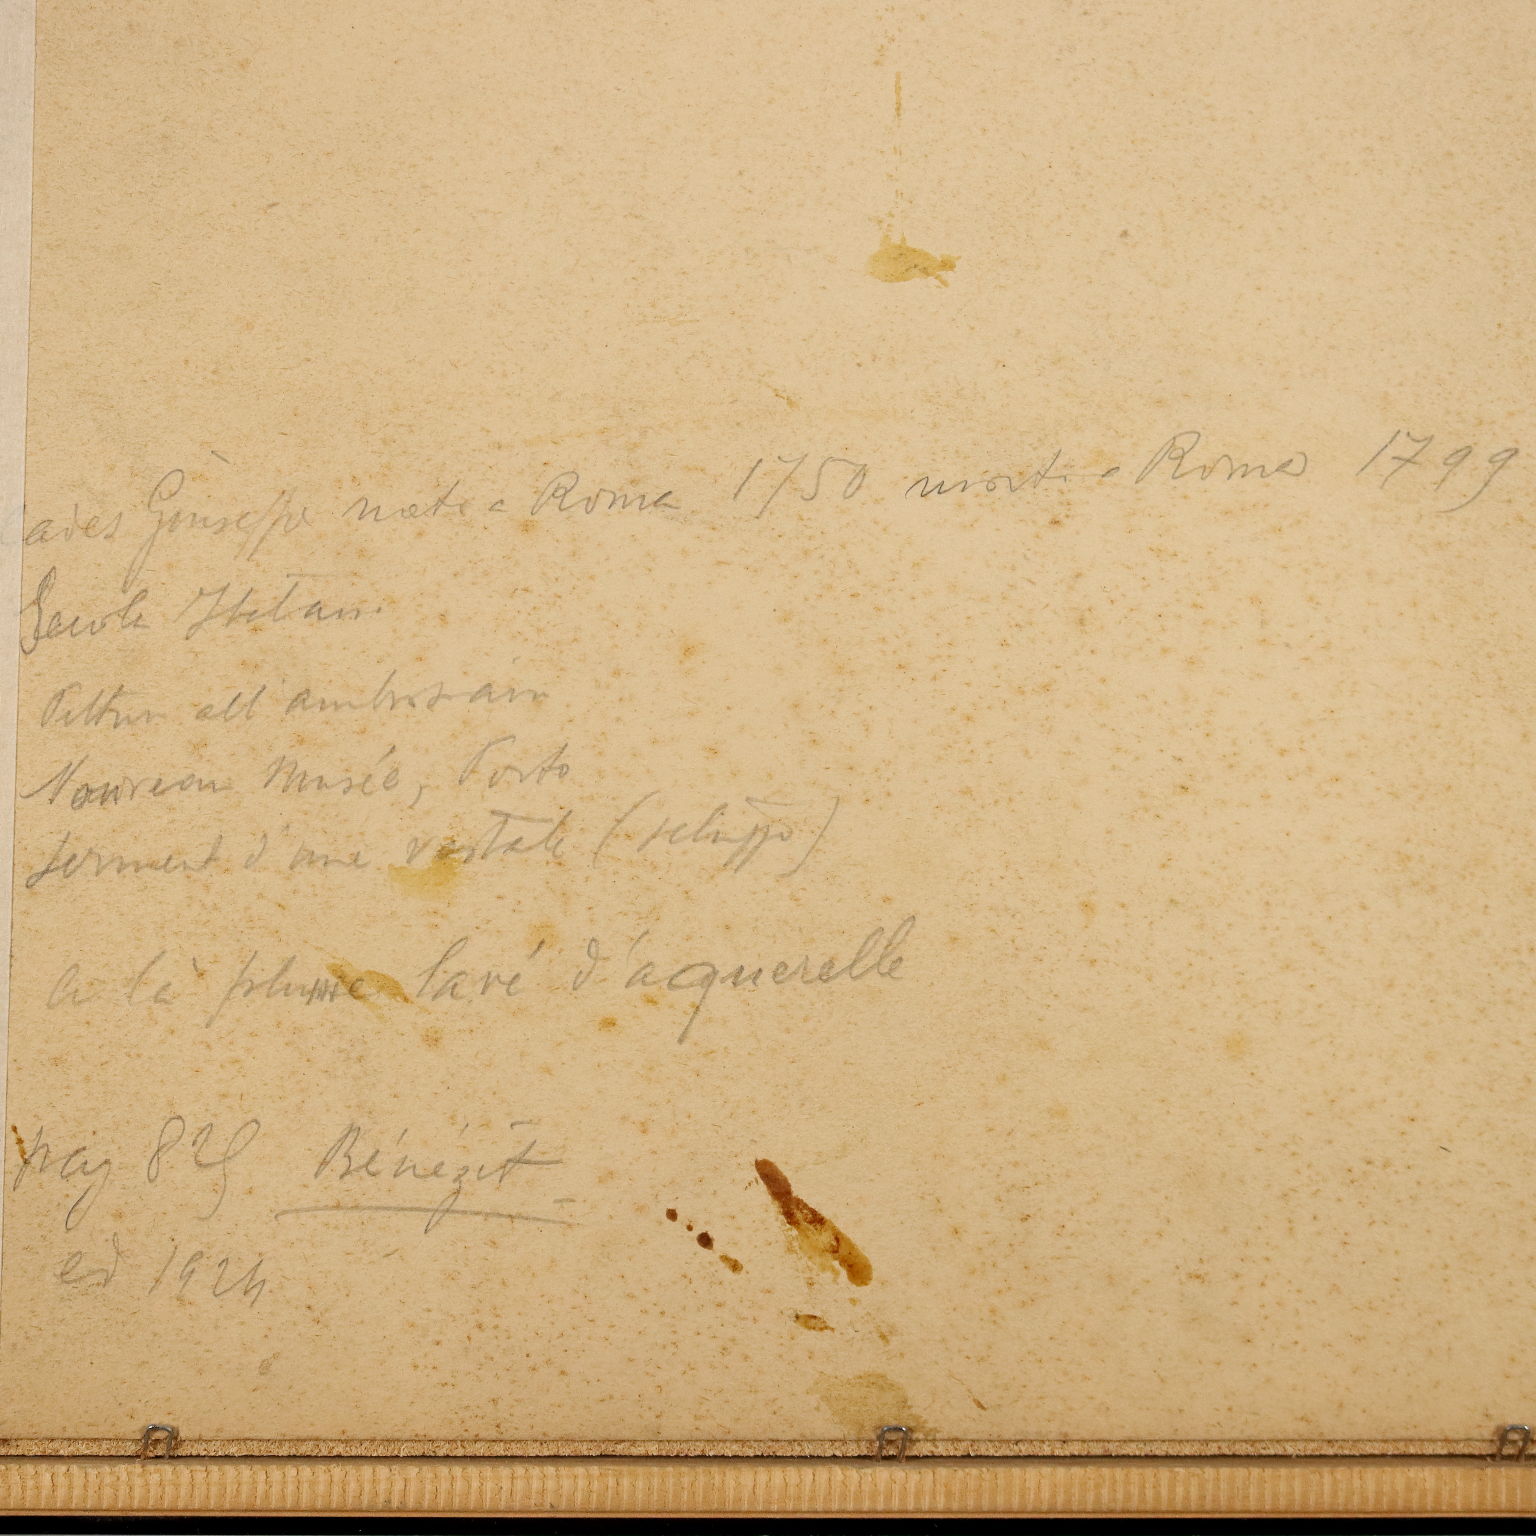 ades Giuseppe nato a Roma 1750 morto a Roma 1799
Scuola Italiana
Pittura all'ambrosiana
Nouveau Musée, Porto
serment d'une vestale (schizzo)
a là plume lavé d'acquerelle
pag 829 Bénézit
ed 1924